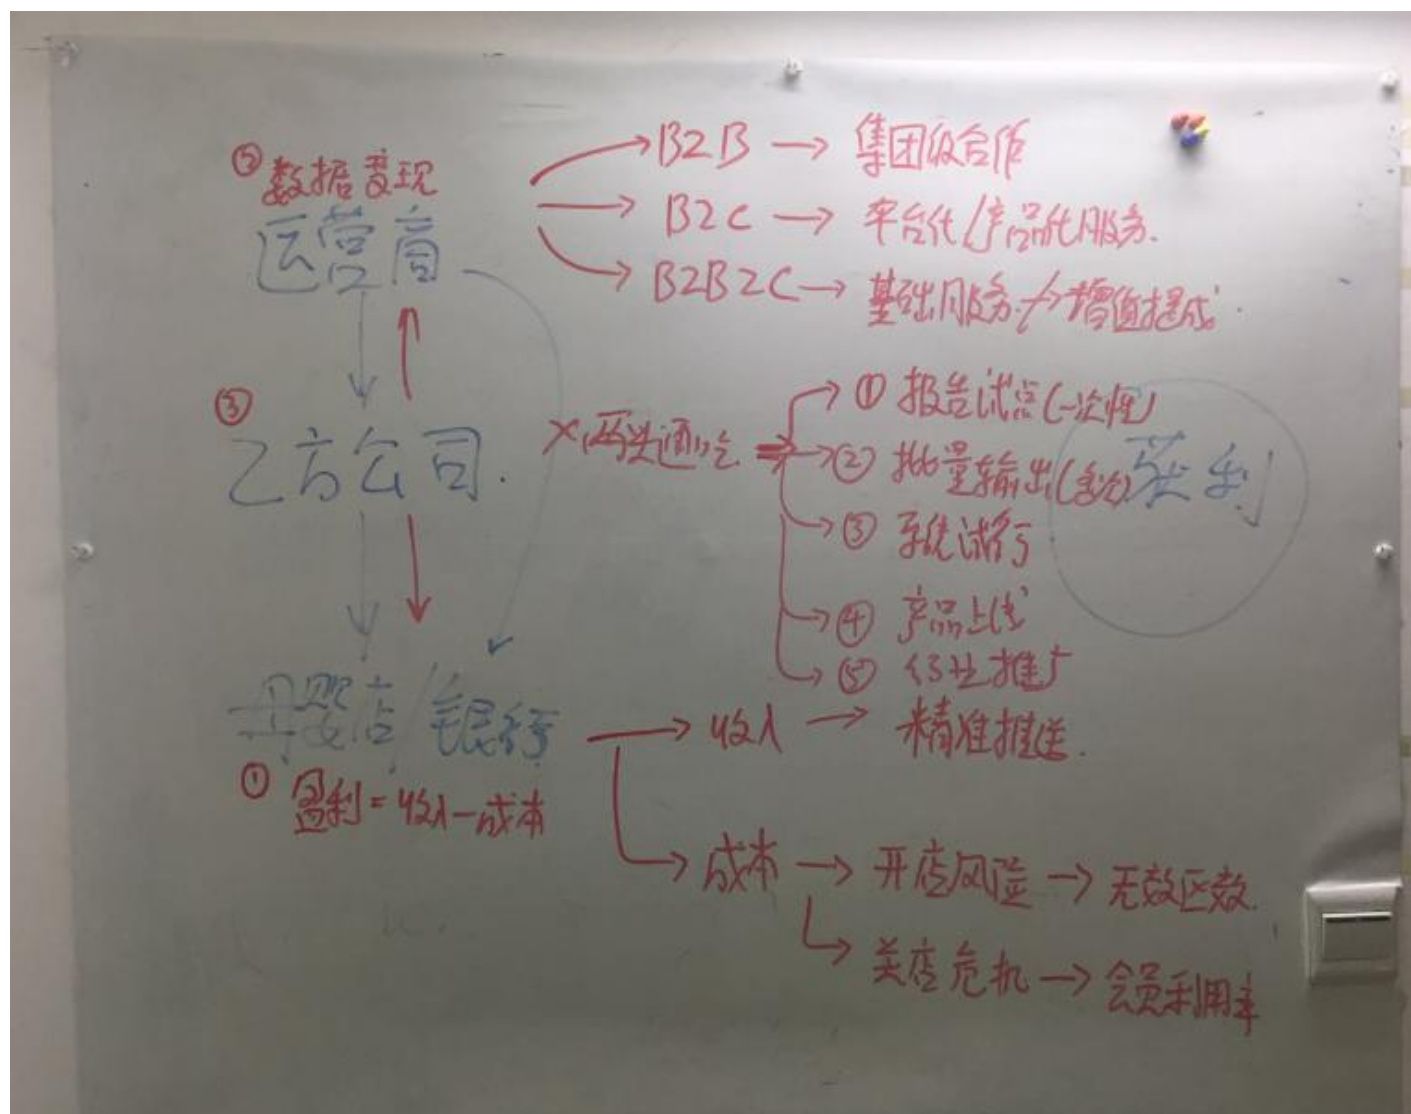 ② 数据变现
运营商
→ B2B → 集团级合作
→ B2C → 平台化/产品化服务.
→ B2B2C → 基础服务 + 增值提成
③
乙方公司.
两头通吃
→ ① 报告试点(一次性)
→ ② 批量输出(多次)
获利
→ ③ 系统试行
→ ④ 产品上线
→ ⑤ 行业推广
母婴店/银行
→ 收入 → 精准推送.
① 盈利=收入-成本
→ 成本 → 开店风险 → 无效区效.
→ 关店危机 → 会员利用率